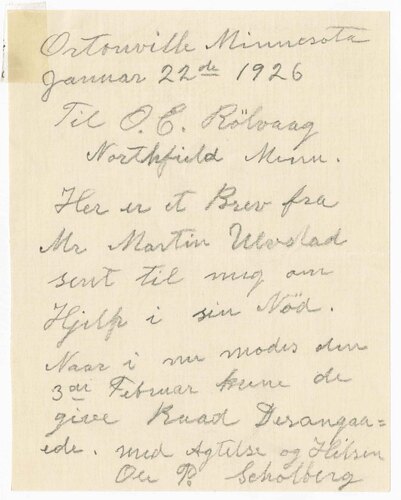 Ortonville Minnesota
Januar 22de 1926
Til O. E. Rölvaag
Northfield Minn.
Her er et Brev fra
Mr Martin Ulvstad
sent til mig om
Hjelp i sin Nöd.
Naar i nu modes den
3di Februar kune de
give Raad Desangaa=
ede. med Agtelse og Hilsen
Ole P. Scholberg